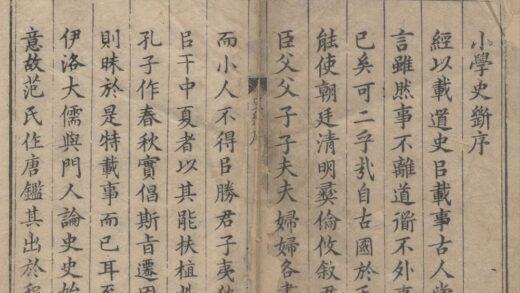 小學史斷序
經以載道史㠯載事古人嘗
言雖然事不離道衜不外事
已矣可二乎㢤自古國於
能使朝廷清明彞倫攸敘君
臣父父子子夫夫婦婦各盡
而小人不得㠯勝君子夷狄
㠯干中夏者以其能扶植
孔子作春秋實倡斯旨遷固
則昧於是特載事而已耳至
伊洛大儒與門人論史史始
意故范氏作唐鑑其出於程